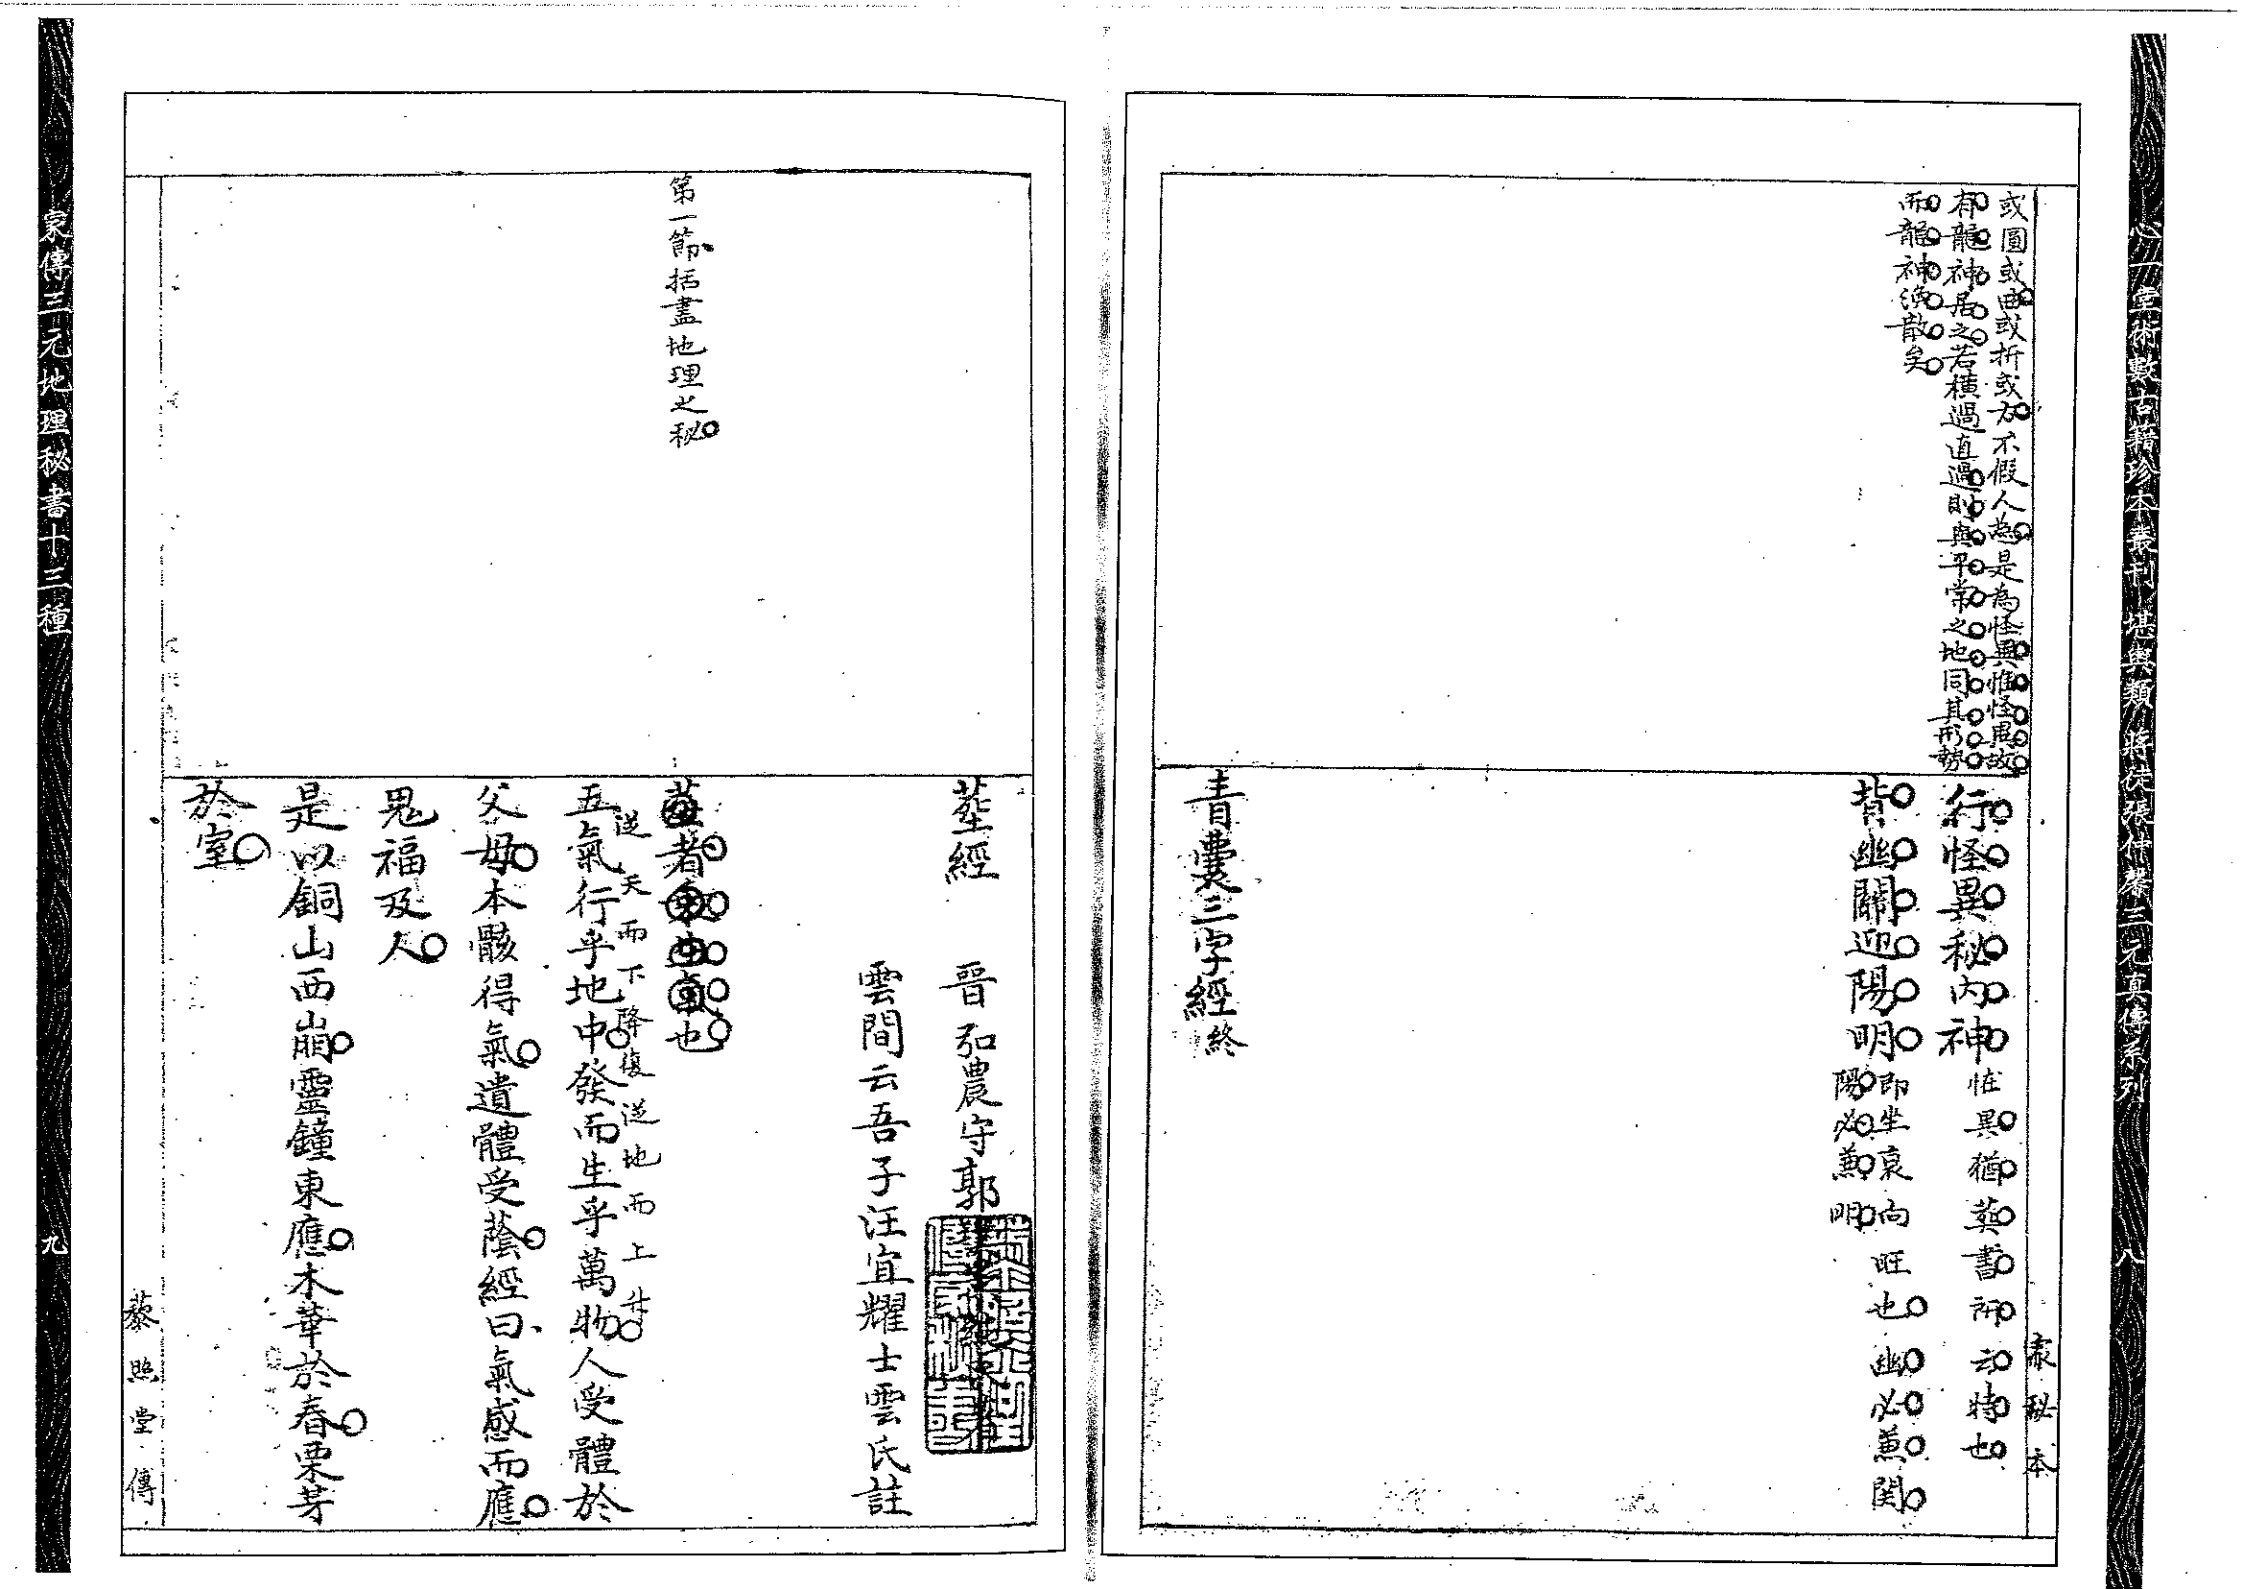 心一堂術數古籍珍本叢刊 堪輿類 蔣徒張仲馨三元真傳系列
八
家秘本
或圓或曲或折或方不假人為是為怪異惟怪異故
有龍神居之若橫過直過則與平常之地同其形勢
而龍神渙散矣
行怪異秘內神
怪異猶葬書所云特也
背幽關迎陽明
即坐衰向旺也幽必蕪関
陽必蕪明
青囊三字經終
塟經
晉弘農守郭
雲間云吾子汪宜耀士雲氏註
第一節括盡地理之秘
塟者乘生氣也
五氣行乎地中發而生乎萬物人受體於
從天而下降復從地而上升
父母本骸得氣遺體受蔭經曰氣感而應
鬼福及人
是以銅山西崩靈鐘東應木華於春栗芽
於室
藜照堂傳
家傳三元地理秘書十三種
九